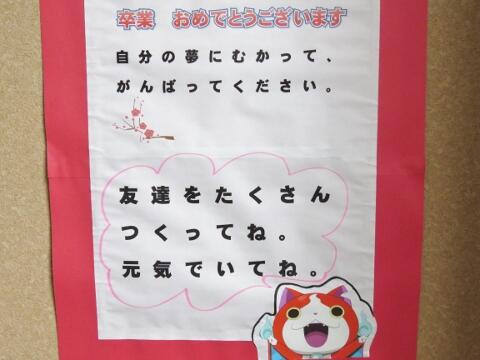 卒業　おめでとうございます
自分の夢にむかって、
がんばってください。
友達をたくさん
つくってね。
元気でいてね。